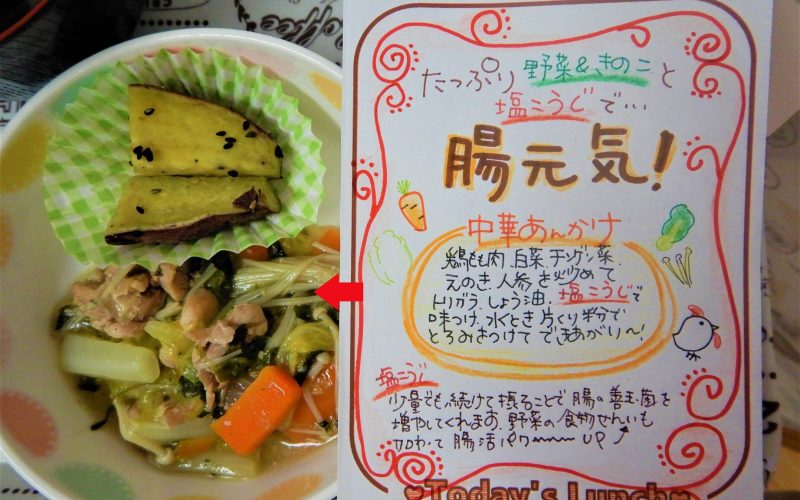 Coffee
たっぷり 野菜&きのこ と
塩こうじ でいい
腸元気!
中華あんかけ
鶏もも肉、白菜 チンゲン菜
えのき、人参 を炒めて
トリガラ、しょう油、塩こうじで
味つけ、水とき片くり粉で
とろみをつけて できあがり〜!
塩こうじ
少量でも続けて摂ることで 腸の善玉菌を
増やしてくれます。野菜の食物せんいも
加わって 腸活パワー UP
♥Today's Lunch♥